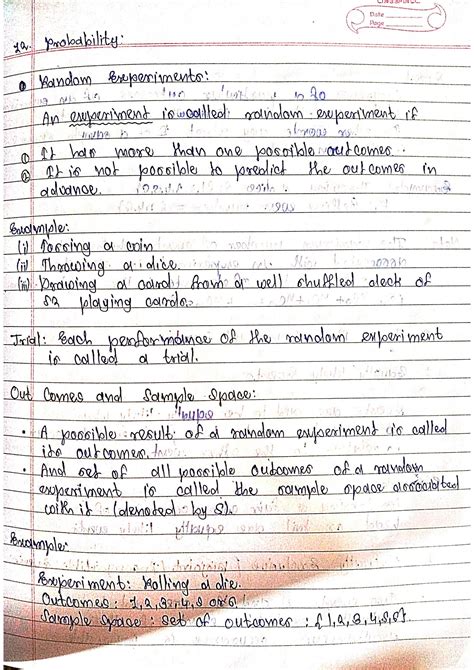 Date
Page
12. Probability:
Random Experiments:
An experiment is called random experiment if
① It has more than one possible outcomes.
② It is not possible to predict the outcomes in
advance.
Example:
(i) Tossing a coin
(ii) Throwing a dice.
(iii) Drawing a card from a well shuffled deck of
52 playing cards.
Trial: Each performance of the random experiment
is called a trial.
Out Comes and Sample Space:
• A possible result of a random experiment is called
its outcomes.
• And set of all possible outcomes of a random
experiment is called the sample space associated
with it (denoted by S).
Example:
Experiment: Rolling a die.
Outcomes: 1, 2, 3, 4, 5 or 6
Sample Space: set of outcomes: {1, 2, 3, 4, 5, 6}